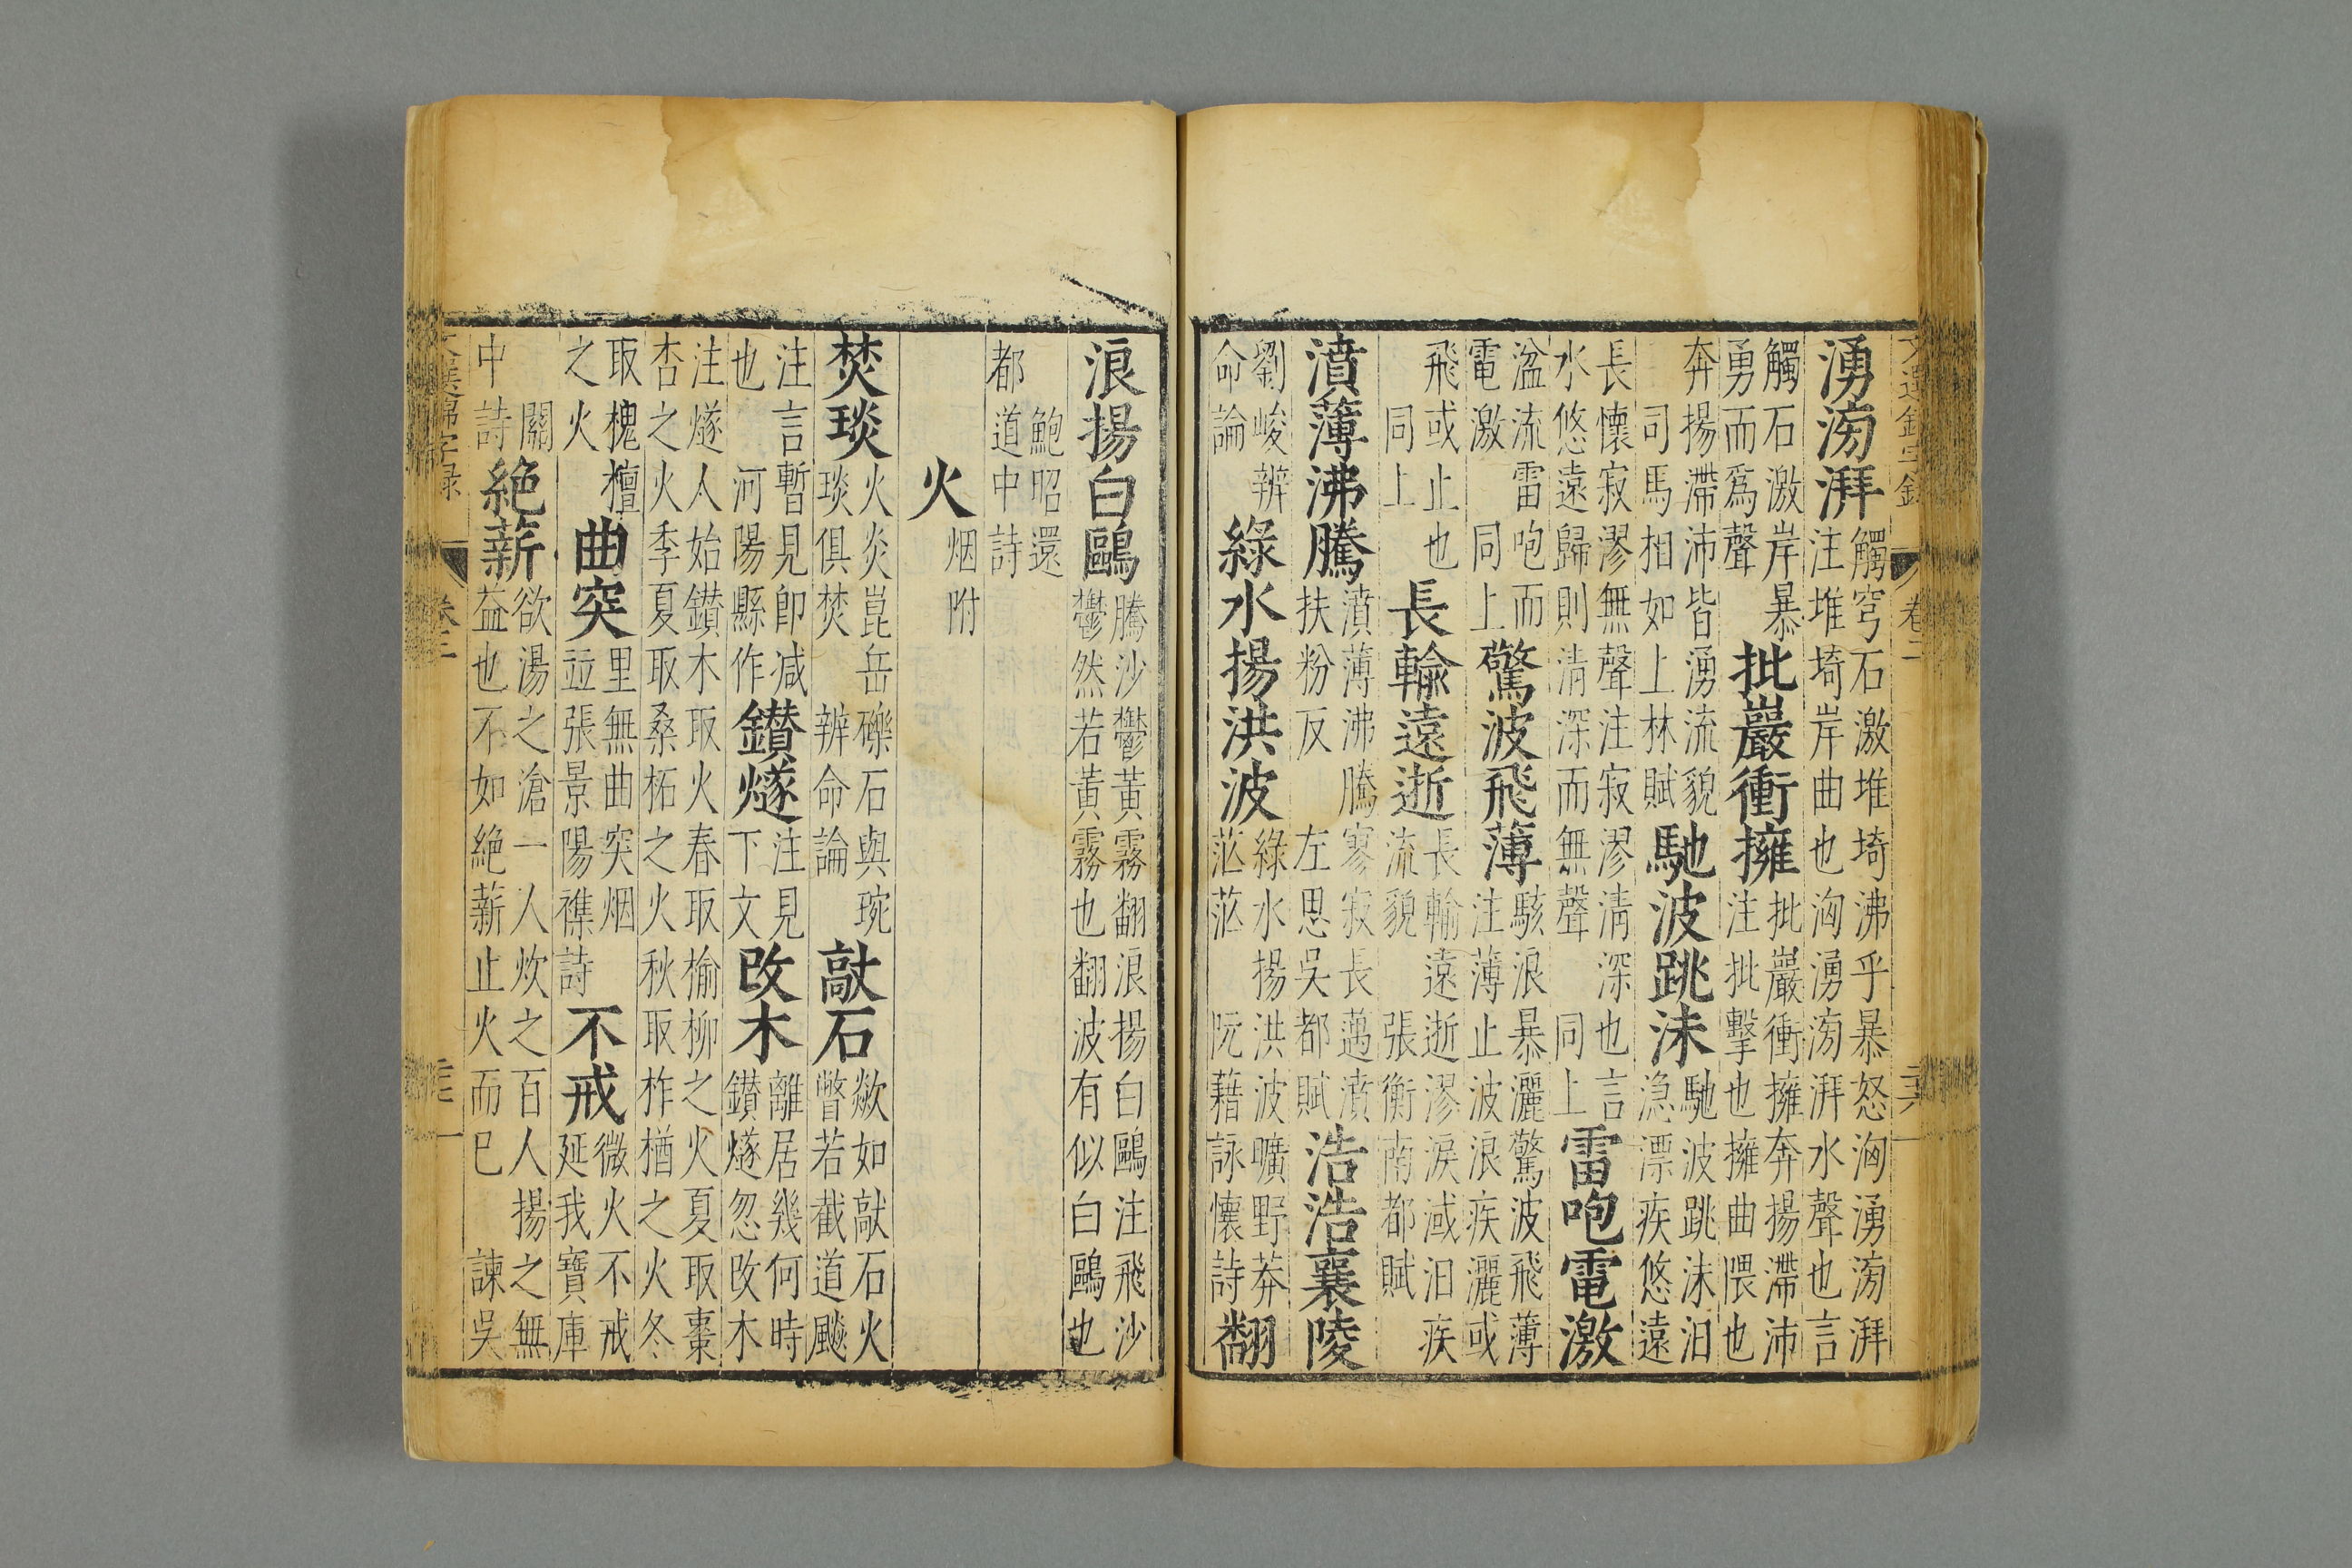 文選錦字錄
卷二
湧滂湃
觸穹石激堆埼沸乎暴怒洶湧滂湃
注堆埼岸曲也洶湧滂湃水聲也言
觸石激岸暴
勇而爲聲
批巖衝擁
批巖衝擁奔揚滯沛
注批擊也擁曲隈也
奔揚滯沛皆湧流貌
司馬相如上林賦
馳波跳沫
馳波跳沫汨
急漂疾悠遠
長懷寂漻無聲注寂漻清深也言
水悠遠歸則清深而無聲 同上
雷咆電激
湓流雷咆而
電激 同上
驚波飛薄
駭浪暴灑驚波飛薄
注薄止波浪疾灑或
飛或止也
同上
長輸遠逝
長輸遠逝漻淚淢汨疾
流貌 張衡南都賦
濆薄沸騰
濆薄沸騰寥寂長邁濆
扶粉反 左思吳都賦
浩浩襄陵
劉峻辨
命論
綠水揚洪波
綠水揚洪波曠野莽
茫茫 阮藉詠懷詩
翻
浪揚白鷗
騰沙鬱黃霧翻浪揚白鷗注飛沙
鬱然若黃霧也翻波有似白鷗也
鮑昭還
都道中詩
火 烟附
焚琰
火炎崑岳礫石與琬
琰俱焚 辨命論
敲石
歘如敲石火
瞥若截道飈
注言暫見卽减
也 河陽縣作
鑚燧
注見
下文
改木
離居幾何時
鑚燧忽改木
注燧人始鑚木取火春取榆柳之火夏取棗
杏之火季夏取桑柘之火秋取柞楢之火冬
取槐檀
之火
曲突
里無曲突烟
竝張景陽襍詩
不戒
微火不戒
延我寶庫
關
中詩
絶薪
欲湯之滄一人炊之百人揚之無
益也不如絶薪止火而已 諫吳